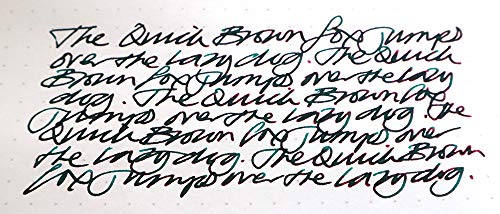 The Quick Brown fox Jumps
over the lazy dog. The Quick
Brown fox Jumps over the lazy
dog. The Quick Brown fox
Jumps over the lazy dog. The
Quick Brown fox Jumps over
the lazy dog. The Quick Brown
fox Jumps over the lazy dog.